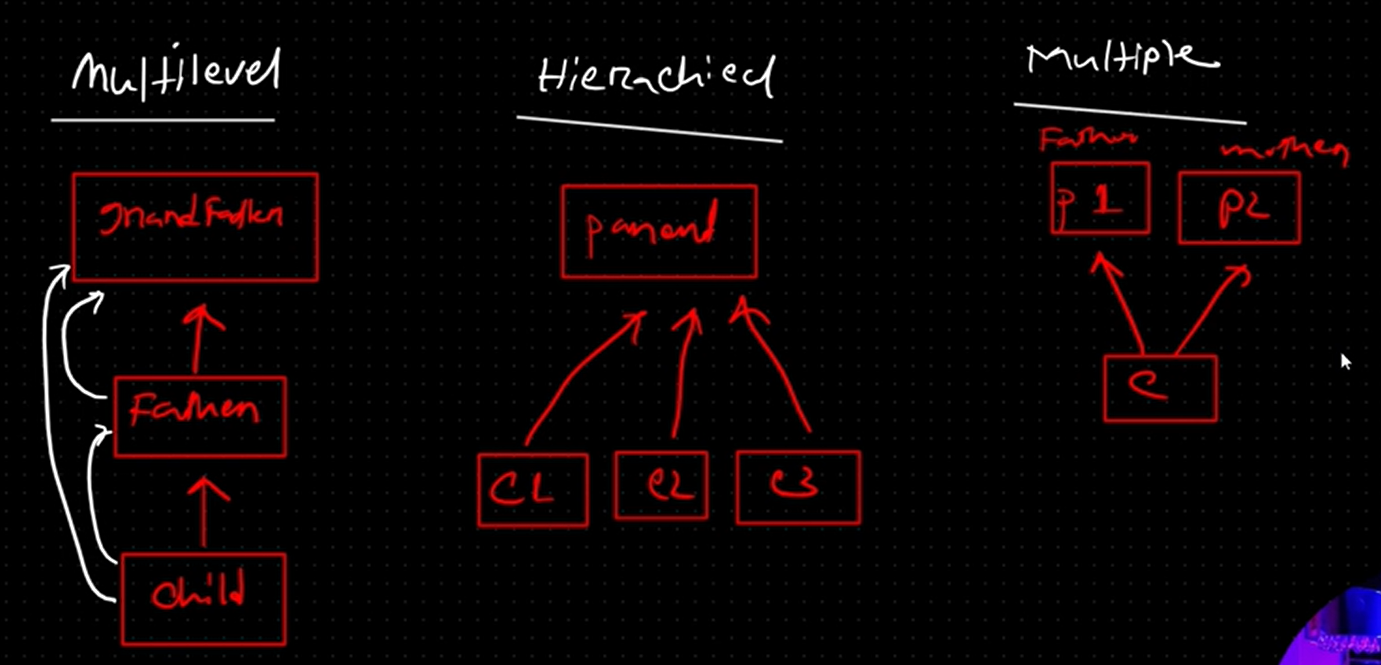 Multilevel
grandFather
Father
child
Hierachied
parent
C1
C2
C3
Multiple
Father
mother
P1
P2
C